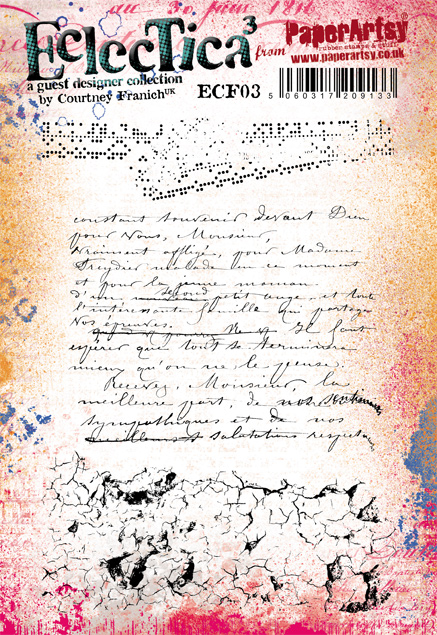 au 30 juin 1816
EclecTica³ from PaperArtsy
rubber stamps & stuff
www.paperartsy.co.uk
a guest designer collection
by Courtney Franich UK ECF03
5 060317 209133
constant souvenir devant Dieu
pour Vous, Monsieur,
Vraiment affligée, pour Madame
malade en ce moment
et pour la jeune maman
d'un second petit ange, et toute
l'intéressante famille qui partage
Vos épreuves. Il faut
espérer que tout se terminera
mieux qu'on ne le pense.
Recevez, Monsieur, la
meilleure part, de nos
sympathiques et de nos
salutations